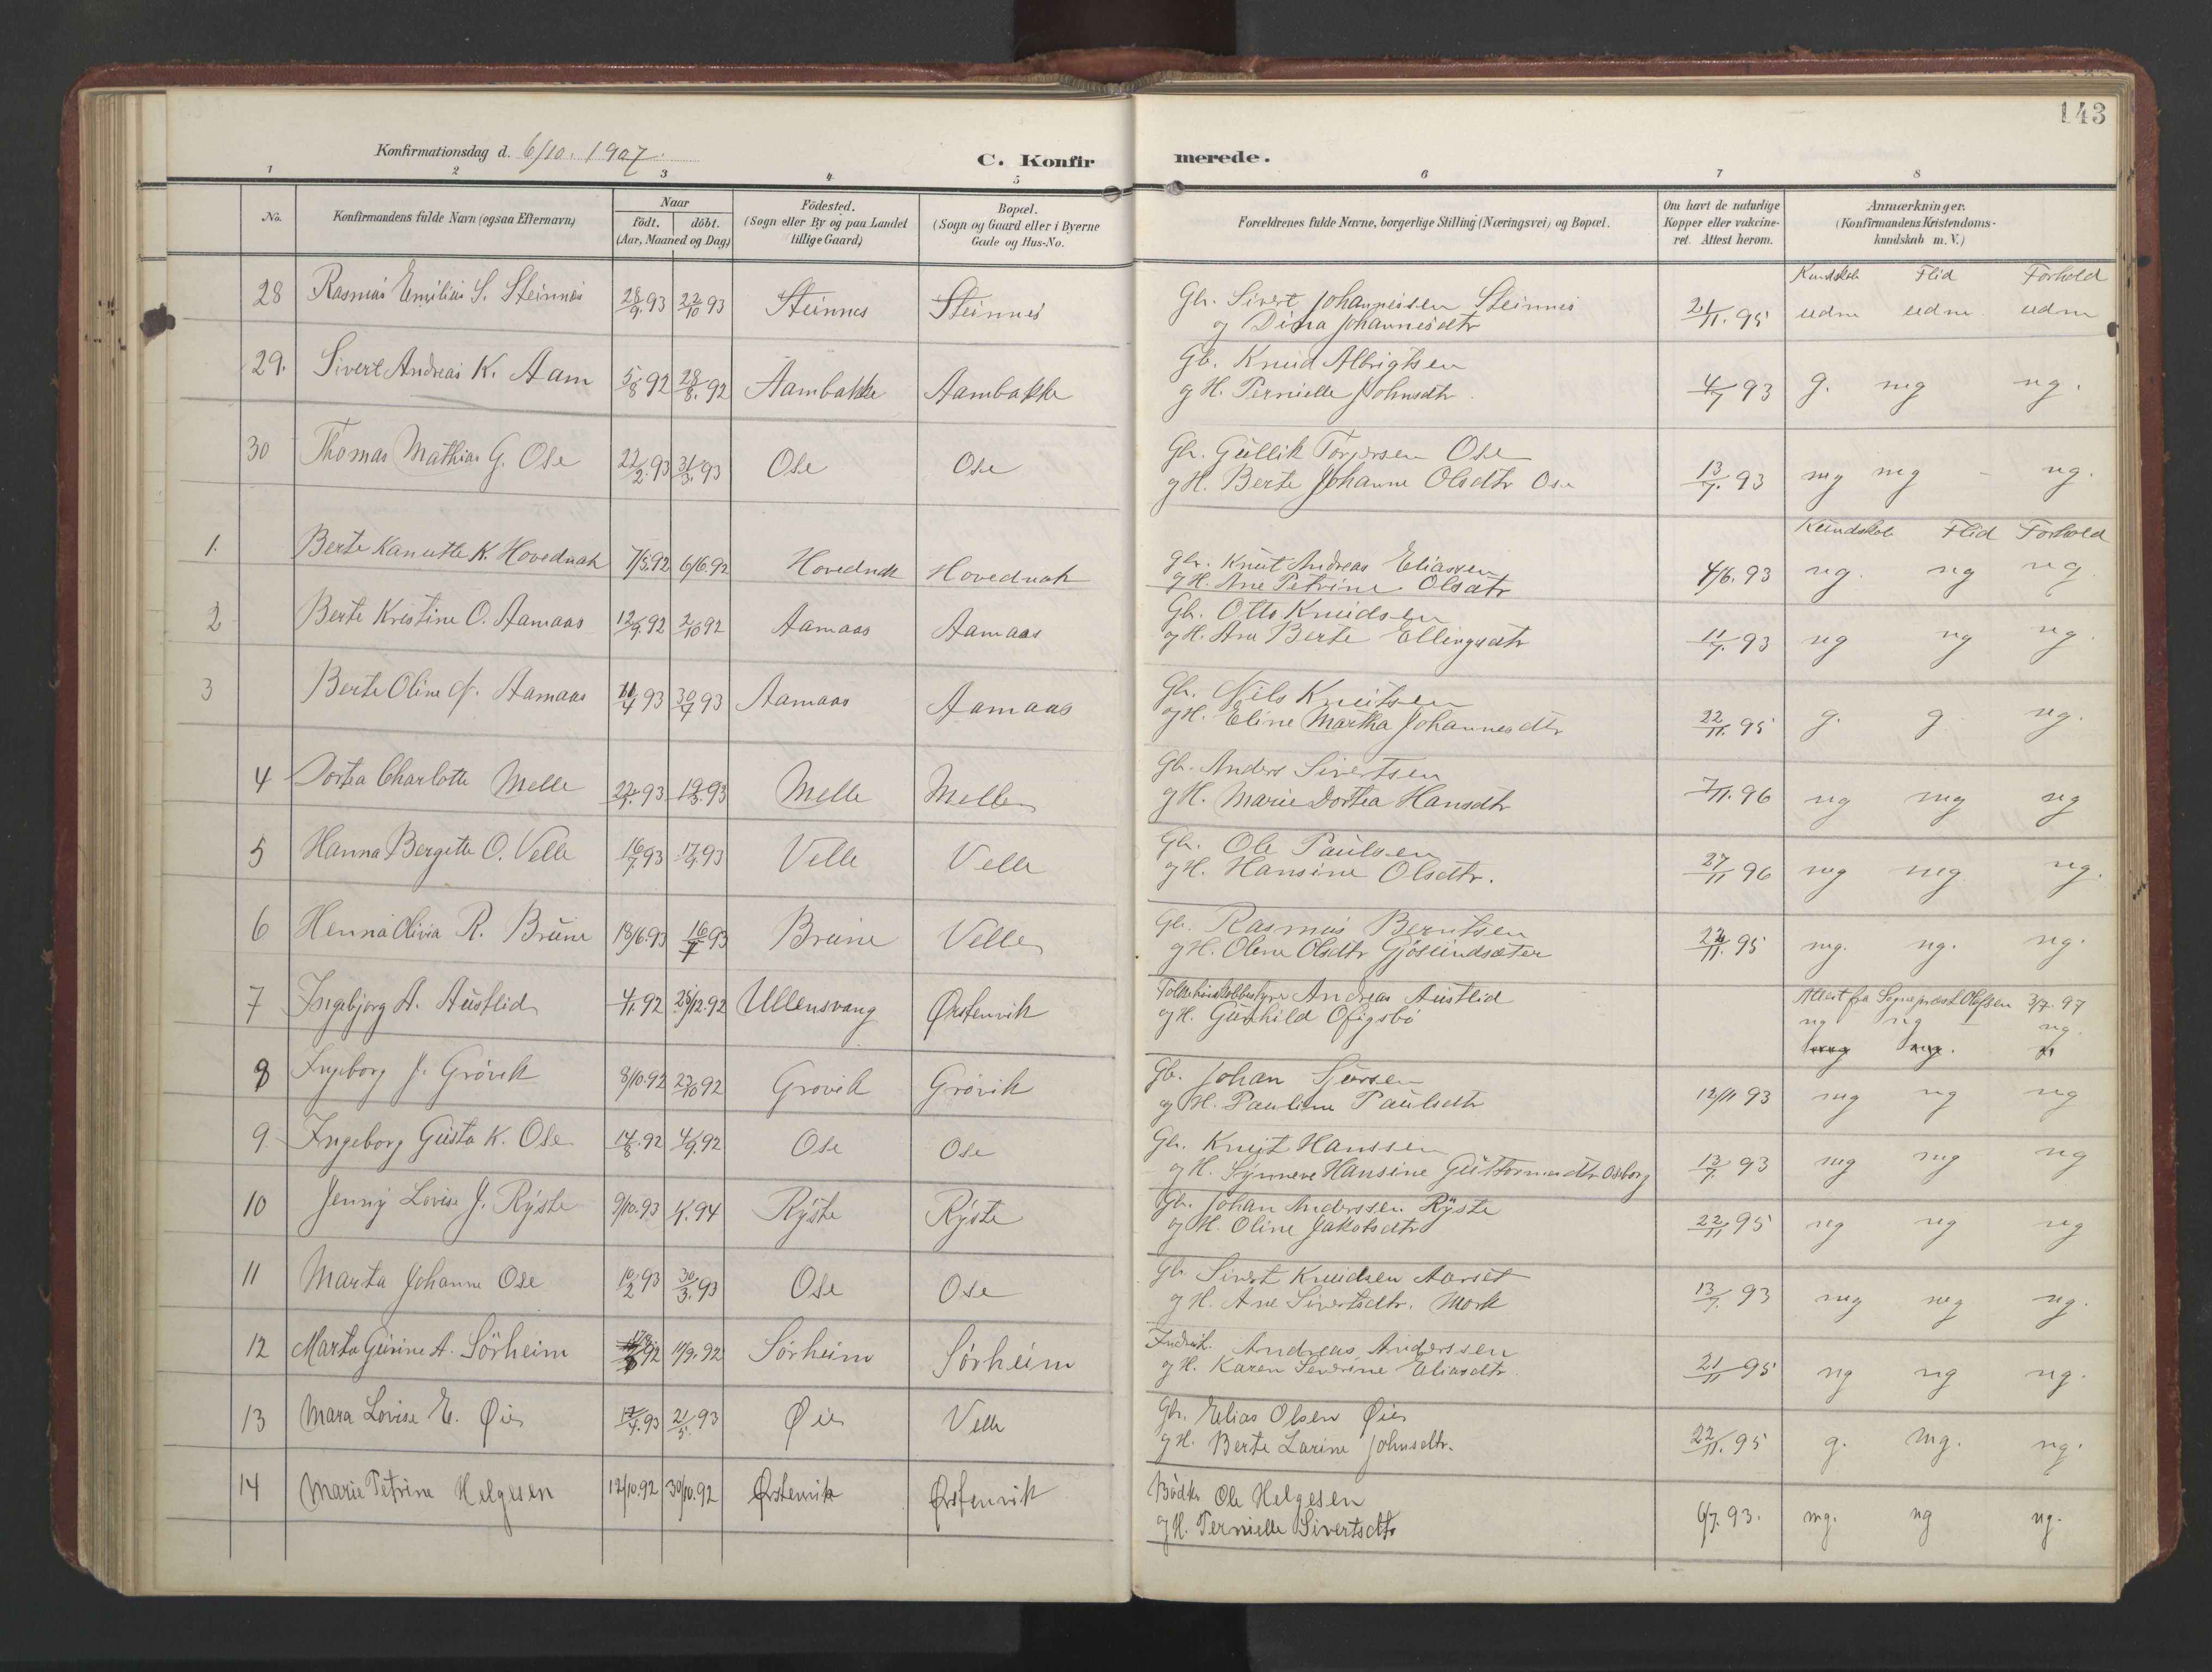 143
Konfirmationsdag d. 6/10. 1907.
C. Konfirmerede.
1 2 3 4 5 6 7 8
No.
Konfirmandens fulde Navn (ogsaa Efternavn)
Naar
födt. döbt.
(Aar, Maaned og Dag)
Födested.
(Sogn eller By og paa Landet
tillige Gaard)
Bopæl.
(Sogn og Gaard eller i Byerne
Gade og Hus-No.
Forældrenes fulde Navne, borgerlige Stilling (Næringsvei) og Bopæl.
Om havt de naturlige
Kopper eller vakcine-
ret. Attest herom.
Anmærkninger.
(Konfirmandens Kristendoms-
kundskab m. V.)
Kundskab Flid Forhold
28 Rasmus Emilius S. Steinnes 28/9.93 22/10 93 Steinnes Steinnes Gbr. Sivert Johannessen Steinnes 21/11.95 udm udm udm
og Dina Johannesdtr
29. Sivert Andreas K. Aam 5/8 92 28/8.92 Aambakke Aambakke Gb. Knud Albrigtsen 4/7 93 g. mg ng.
g H. Pernielle Johnsdtr.
30 Thomas Mathias G. Ose 22/2.93 31/3.93 Ose Ose Gbr. Gullik Torjersen Ose 13/7.93 mg mg - ng.
g H. Berte Johanne Olsdtr Ose
Kundskab Flid Forhold
1. Berte Kanutte K. Hovednak 7/5.92 6/6.92 Hovednak Hovednak gbr. Knut Andreas Eliassen 4/6.93 ng. ng ng
g H. Ane Petrine Olsdtr
2 Berte Kristine O. Aamaas 12/9.92 2/10 92 Aamaas Aamaas Gbr. Otto Knudsen 11/7.93 ng ng ng.
g H. Ane Berte Ellingsdtr
3 Berte Oline N. Aamaas 11/4 93 30/4 93 Aamaas Aamaas Gbr. Nils Knutsen 22/11.95 g. g ng.
g H. Eline Martha Johannesdtr
4 Dortea Charlotte Melle 22/1.93 19/3.93 Melle Melle Gbr. Anders Sivertsen 7/11.96 ng mg ng
g H. Marie Dortea Hansdtr
5 Hanna Bergette O. Velle 16/7.93 17/9.93 Velle Velle Gbr. Ole Paulsen 27/11 96 mg mg ng.
g H. Hansine Olsdtr.
6 Henna Olivia R. Brune 18/6.93 16/7 93 Brune Velle Gb. Rasmus Berntsen 22/11.95 mg. ng. ng.
g H. Olene Olsdtr Gjösundsæter
7 Ingebjorg A. Austlid 4/11.92 25/12.92 Ullensvang Ørstenvik Andreas Austlid Attest fra Sogneprest Olafsen 3/7.97
g H. Gunhild ng ng ng.
8 Ingeborg J. Grövik 8/10.92 23/10 92 Grovik Grövik Gb. Johan Sjursen 12/11 93 mg ng ng
og H. Pauline Paulsdtr
9 Ingeborg Gusta K. Ose 14/8.92 4/9.92 Ose Ose Gbr. Knut Hanssen 13/7.93 mg mg ng
g H. Synneve Hansine Guttormsdtr Oseborg
10 Jenny Lovise J. Ryste 9/10.93 1/1.94 Ryste Ryste Gbr. Johan Anderssen Ryste 22/11.95 ng ng ng
og H. Oline Jakobsdtr
11 Marta Johanne Ose 10/2 93 30/3.93 Ose Ose Gbr Sivert Knudsen Aarset 13/7.93 mg mg ng.
g H. Ane Sivertsdtr. Mork
12 Marta Gurine A. Sörheim 92 11/9.92 Sörheim Sörheim Andreas Anderssen 21/11 95 ng ng ng.
g H. Karen Severine Eliasdtr
13 Mara Lovise E. Øie 17/4.93 21/5.93 Øie Velle Gbr. Elias Olsen Øie 22/11.95 g. mg. ng.
g H. Berte Larine Johnsdtr.
14 Marie Petrine Helgesen 12/10.92 30/10.92 Ørstenvik Ørstenvik Bödker Ole Helgesen 6/7.93. mg. ng ng.
g H. Pernielle Sivertsdtr